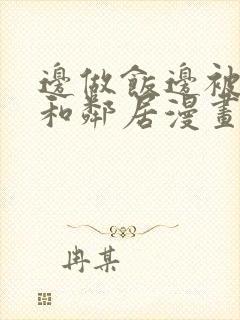 邊做飯邊被
和鄰居漫畫
冉某